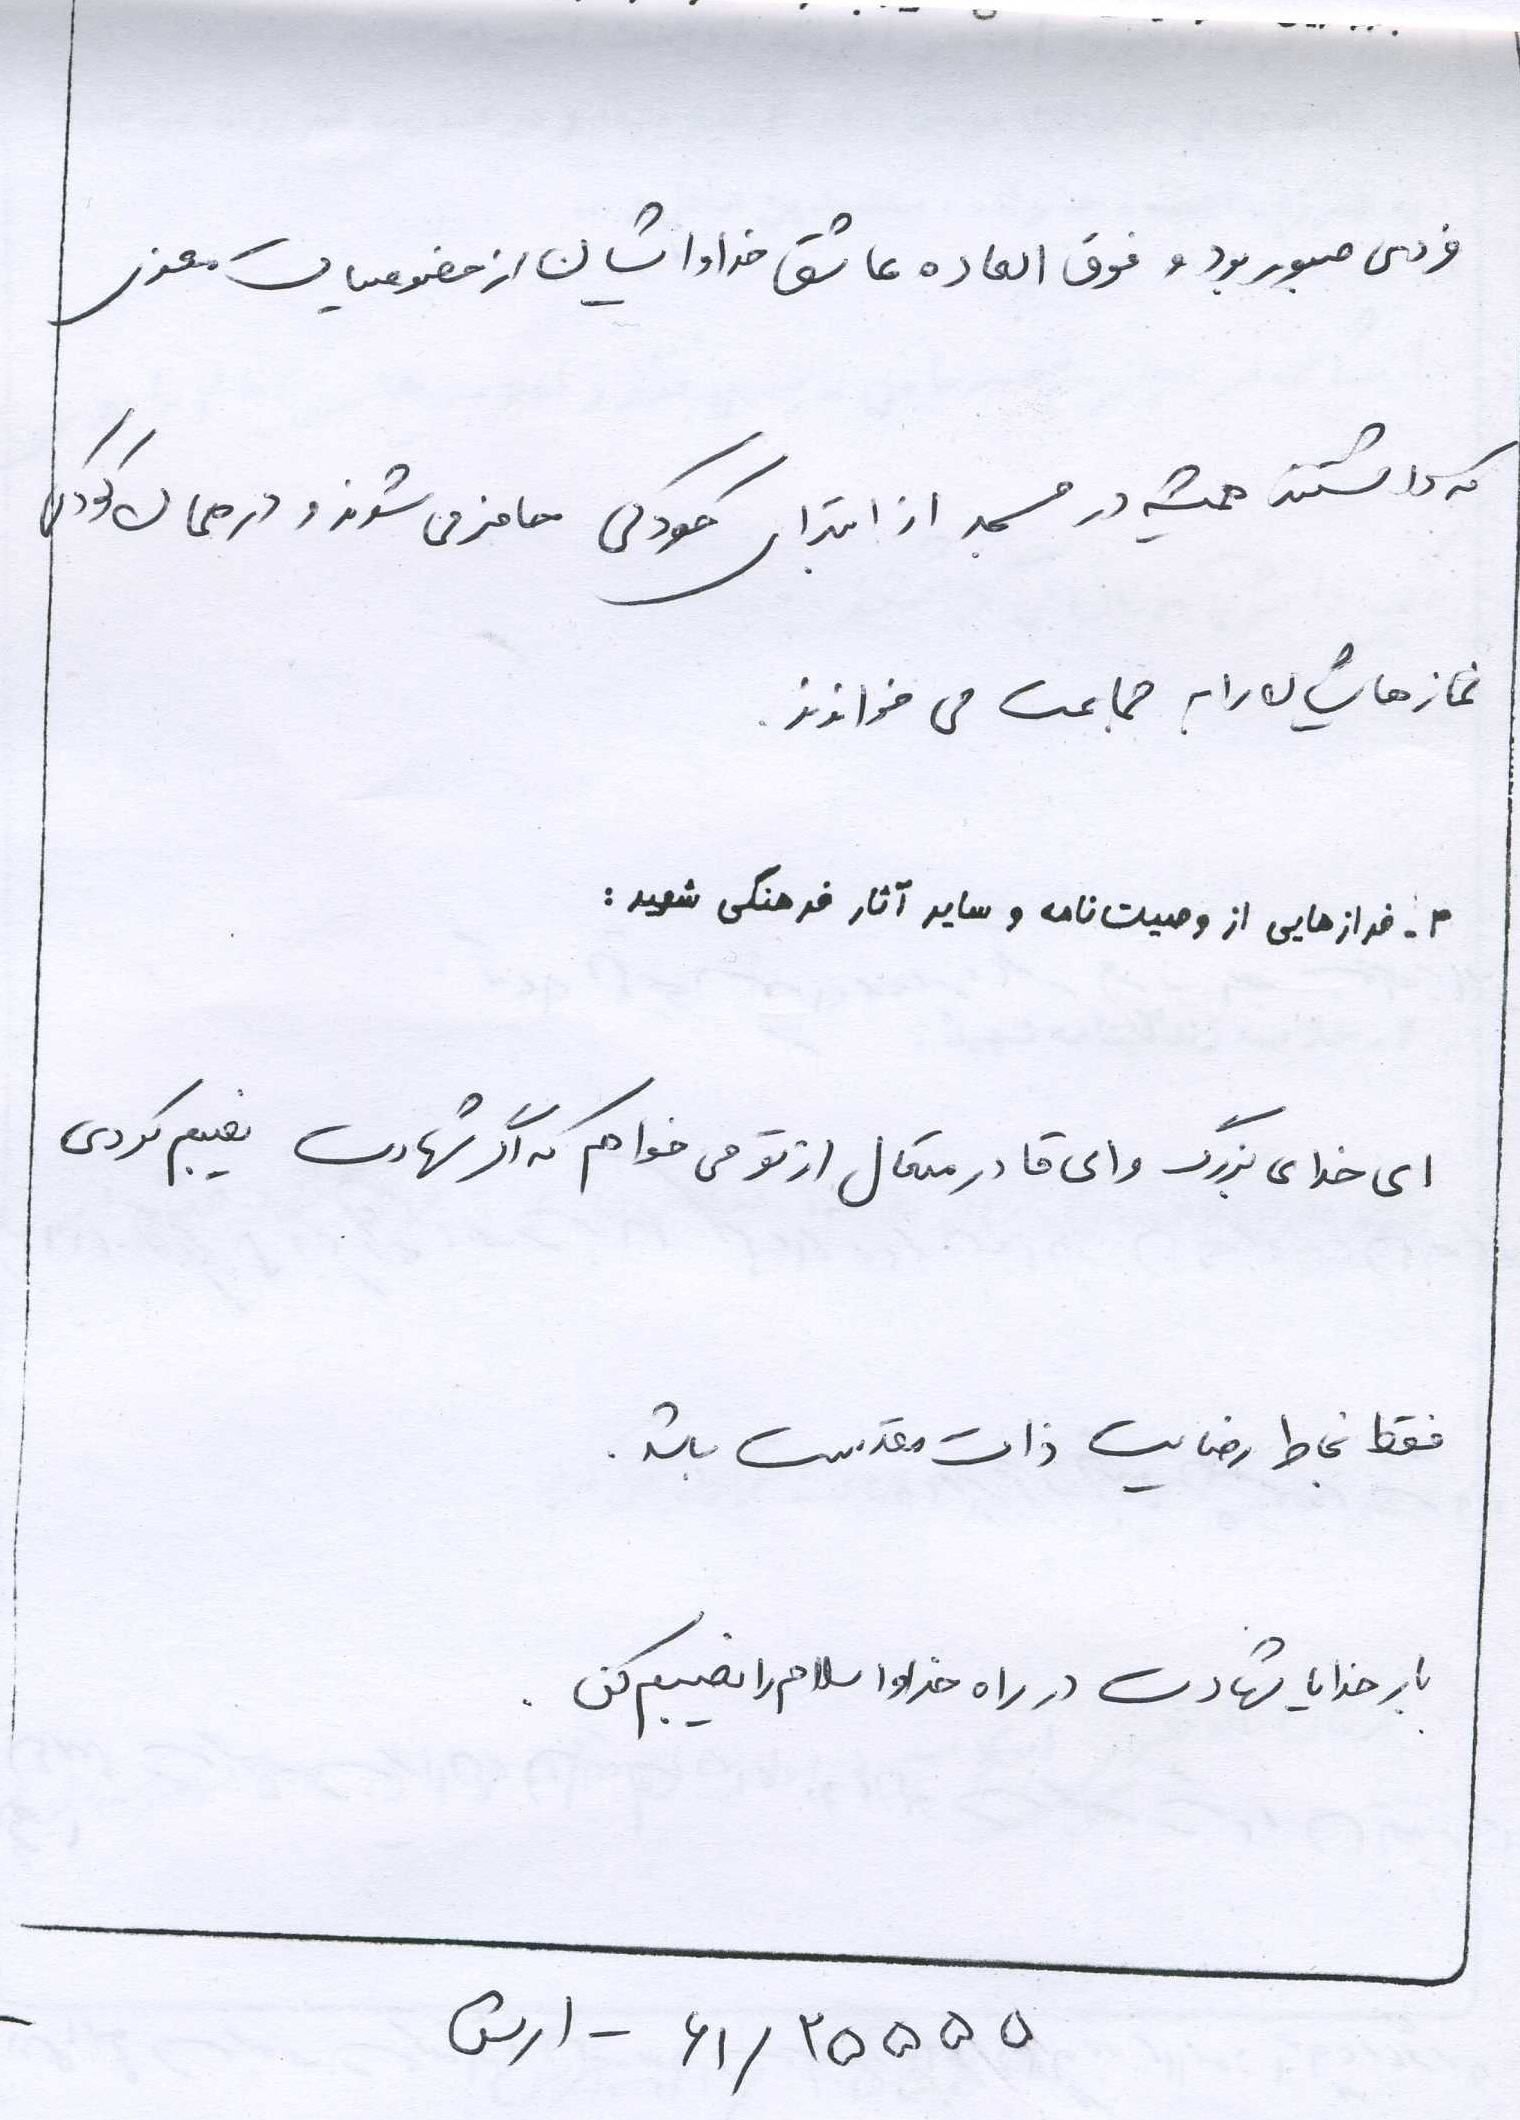 فردی صبور بود و فوق العاده عاشق خدا و ایشان از خصوصیات معنوی
که داشتند همیشه در مسجد از ابتدای کودکی حاضر می شوند و در همان کودکی
نمازهایشان را به جماعت می خواندند.
۳ـ فرازهایی از وصیت‌نامه و سایر آثار فرهنگی شهید :
ای خدای بزرگ و ای قادر متعال از تو می خواهم که اگر شهادت نصیبم کردی
فقط بخاطر رضایت ذات مقدست باشد.
بار خدایا شهادت در راه خدا و اسلام را نصیبم کن.
۶۱/۲۵۵۵۵ - ارتش